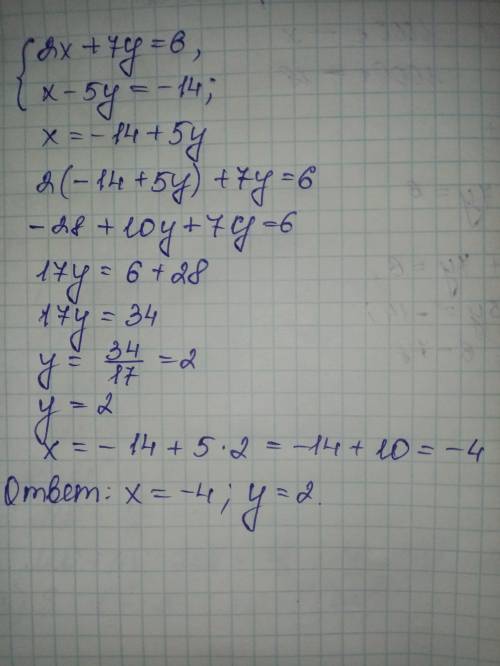 {2x + 7y = 6,
x - 5y = -14;
x = -14 + 5y
2(-14 + 5y) + 7y = 6
-28 + 10y + 7y = 6
17y = 6 + 28
17y = 34
y = 34/17 = 2
y = 2
x = -14 + 5·2 = -14 + 10 = -4
Ответ: x = -4; y = 2.